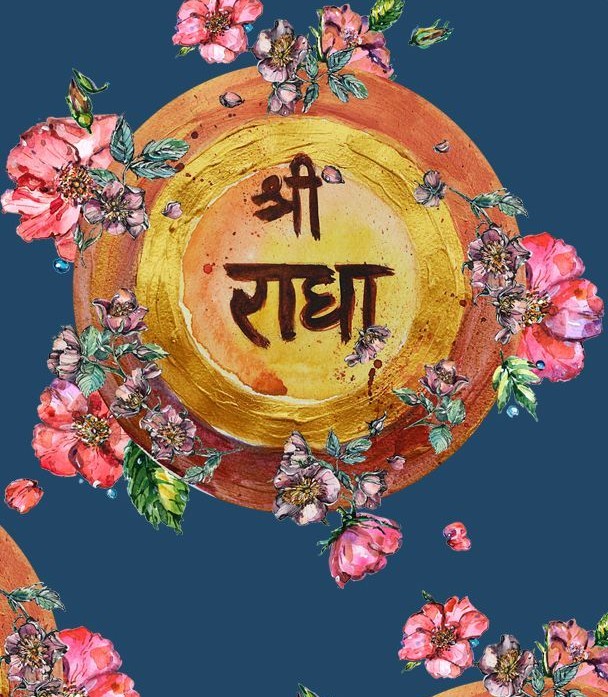 श्री
राधा